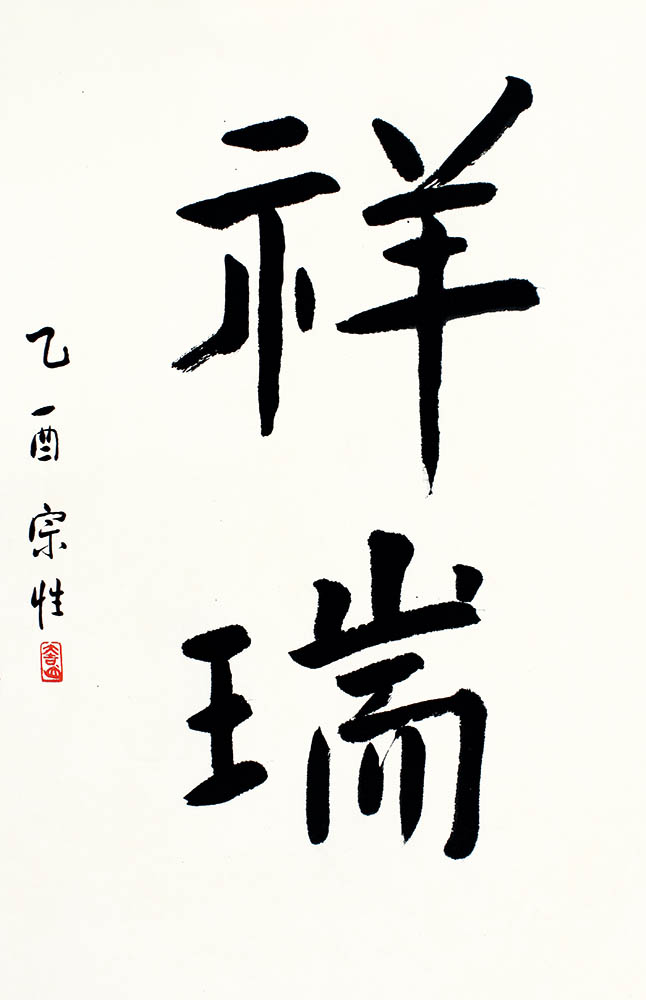 祥瑞
乙酉宗性